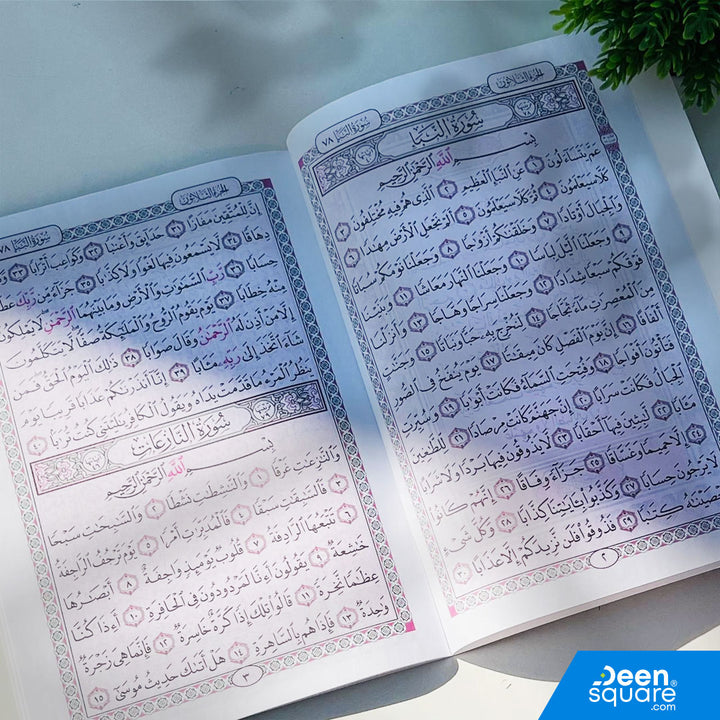 الجزء الثلاثون
سُورَةُ النَّبَإِ ٧٨
سُورَةُ النَّبَإِ
بِسْمِ اللَّهِ الرَّحْمَٰنِ الرَّحِيمِ
عَمَّ يَتَسَاءَلُونَ ١ عَنِ النَّبَإِ الْعَظِيمِ ٢ الَّذِي هُمْ فِيهِ مُخْتَلِفُونَ ٣
كَلَّا سَيَعْلَمُونَ ٤ ثُمَّ كَلَّا سَيَعْلَمُونَ ٥ أَلَمْ نَجْعَلِ الْأَرْضَ مِهَٰدًا ٦
وَالْجِبَالَ أَوْتَادًا ٧ وَخَلَقْنَٰكُمْ أَزْوَٰجًا ٨ وَجَعَلْنَا نَوْمَكُمْ سُبَاتًا ٩
وَجَعَلْنَا الَّيْلَ لِبَاسًا ١٠ وَجَعَلْنَا النَّهَارَ مَعَاشًا ١١ وَبَنَيْنَا
فَوْقَكُمْ سَبْعًا شِدَادًا ١٢ وَجَعَلْنَا سِرَاجًا وَهَّاجًا ١٣ وَأَنزَلْنَا
مِنَ الْمُعْصِرَٰتِ مَاءً ثَجَّاجًا ١٤ لِّنُخْرِجَ بِهِ حَبًّا وَنَبَاتًا ١٥ وَجَنَّٰتٍ
أَلْفَافًا ١٦ إِنَّ يَوْمَ الْفَصْلِ كَانَ مِيقَٰتًا ١٧ يَوْمَ يُنفَخُ فِي الصُّورِ
فَتَأْتُونَ أَفْوَاجًا ١٨ وَفُتِحَتِ السَّمَاءُ فَكَانَتْ أَبْوَٰبًا ١٩ وَسُيِّرَتِ
الْجِبَالُ فَكَانَتْ سَرَابًا ٢٠ إِنَّ جَهَنَّمَ كَانَتْ مِرْصَادًا ٢١ لِّلطَّٰغِينَ
مَـَٔابًا ٢٢ لَّٰبِثِينَ فِيهَا أَحْقَابًا ٢٣ لَّا يَذُوقُونَ فِيهَا بَرْدًا وَلَا شَرَابًا ٢٤
إِلَّا حَمِيمًا وَغَسَّاقًا ٢٥ جَزَاءً وِفَاقًا ٢٦ إِنَّهُمْ كَانُوا
لَا يَرْجُونَ حِسَابًا ٢٧ وَكَذَّبُوا بِـَٔايَٰتِنَا كِذَّابًا ٢٨ وَكُلَّ شَيْءٍ
أَحْصَيْنَٰهُ كِتَٰبًا ٢٩ فَذُوقُوا فَلَن نَّزِيدَكُمْ إِلَّا عَذَابًا ٣٠
٢
الجزء الثلاثون
سُورَةُ النَّبَإِ ٧٨
إِنَّ لِلْمُتَّقِينَ مَفَازًا ٣١ حَدَائِقَ وَأَعْنَٰبًا ٣٢ وَكَوَاعِبَ أَتْرَابًا ٣٣ وَكَأْسًا
دِهَاقًا ٣٤ لَّا يَسْمَعُونَ فِيهَا لَغْوًا وَلَا كِذَّٰبًا ٣٥ جَزَاءً مِّن رَّبِّكَ عَطَاءً
حِسَابًا ٣٦ رَّبِّ السَّمَٰوَٰتِ وَالْأَرْضِ وَمَا بَيْنَهُمَا الرَّحْمَٰنِ لَا يَمْلِكُونَ
مِنْهُ خِطَابًا ٣٧ يَوْمَ يَقُومُ الرُّوحُ وَالْمَلَٰئِكَةُ صَفًّا لَّا يَتَكَلَّمُونَ
إِلَّا مَنْ أَذِنَ لَهُ الرَّحْمَٰنُ وَقَالَ صَوَابًا ٣٨ ذَٰلِكَ الْيَوْمُ الْحَقُّ فَمَن
شَاءَ اتَّخَذَ إِلَىٰ رَبِّهِ مَـَٔابًا ٣٩ إِنَّا أَنذَرْنَٰكُمْ عَذَابًا قَرِيبًا يَوْمَ
يَنظُرُ الْمَرْءُ مَا قَدَّمَتْ يَدَاهُ وَيَقُولُ الْكَافِرُ يَٰلَيْتَنِي كُنتُ تُرَٰبًا ٤٠
سُورَةُ النَّازِعَاتِ
بِسْمِ اللَّهِ الرَّحْمَٰنِ الرَّحِيمِ
وَالنَّٰزِعَٰتِ غَرْقًا ١ وَالنَّٰشِطَٰتِ نَشْطًا ٢ وَالسَّٰبِحَٰتِ سَبْحًا
٣ فَالسَّٰبِقَٰتِ سَبْقًا ٤ فَالْمُدَبِّرَٰتِ أَمْرًا ٥ يَوْمَ تَرْجُفُ الرَّاجِفَةُ
٦ تَتْبَعُهَا الرَّادِفَةُ ٧ قُلُوبٌ يَوْمَئِذٍ وَاجِفَةٌ ٨ أَبْصَٰرُهَا
خَٰشِعَةٌ ٩ يَقُولُونَ أَءِنَّا لَمَرْدُودُونَ فِي الْحَافِرَةِ ١٠ أَءِذَا كُنَّا
عِظَٰمًا نَّخِرَةً ١١ قَالُوا تِلْكَ إِذًا كَرَّةٌ خَاسِرَةٌ ١٢ فَإِنَّمَا هِيَ زَجْرَةٌ
وَٰحِدَةٌ ١٣ فَإِذَا هُم بِالسَّاهِرَةِ ١٤ هَلْ أَتَىٰكَ حَدِيثُ مُوسَىٰ ١٥
٣
Deen
square®
.com